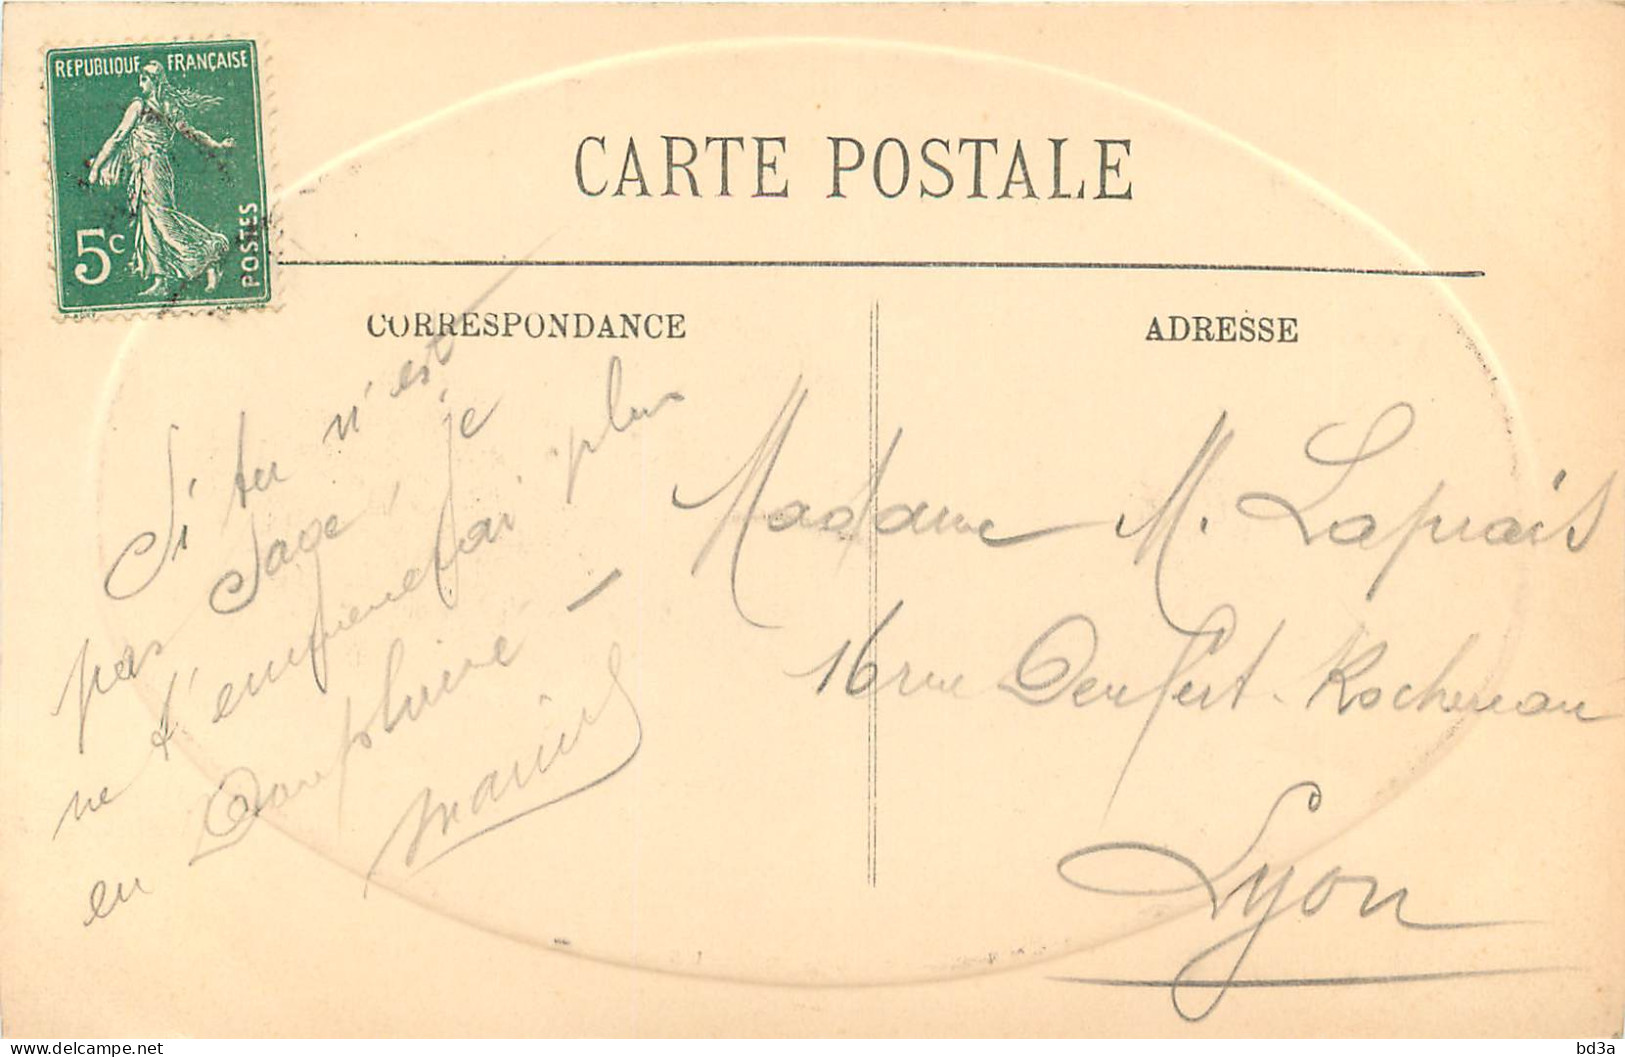 REPUBLIQUE FRANÇAISE
5c
POSTES
CARTE POSTALE
CORRESPONDANCE
Si tu n'est
pas sage, je
ne t'emmenerai plus
en Dauphiné –
Marius
ADRESSE
Madame M. Laprais
16 rue Denfert-Rochereau
Lyon
bd3a